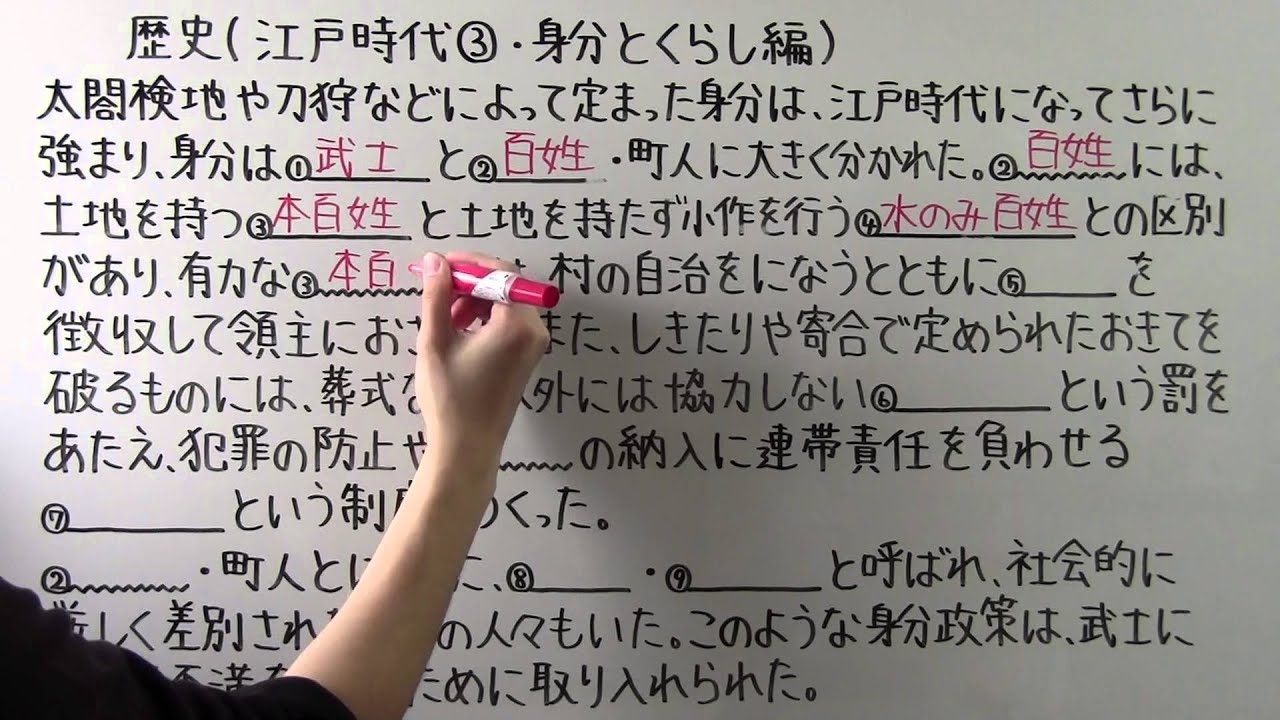 歴史(江戸時代③・身分とくらし編)
太閤検地や刀狩などによって定まった身分は、江戸時代になってさらに
強まり、身分は①武士と②百姓・町人に大きく分かれた。②百姓には、
土地を持つ③本百姓と土地を持たず小作を行う④水のみ百姓との区別
があり、有力な③本百 村の自治をになうとともに⑤ を
徴収して領主におさ また、しきたりや寄合で定められたおきてを
破るものには、葬式な 外には協力しない⑥ という罰を
あたえ、犯罪の防止や の納入に連帯責任を負わせる
⑦ という制 つくった。
② ・町人とは に、⑧ ・⑨ と呼ばれ、社会的に
しく差別され の人々もいた。このような身分政策は、武士に
不満 ために取り入れられた。